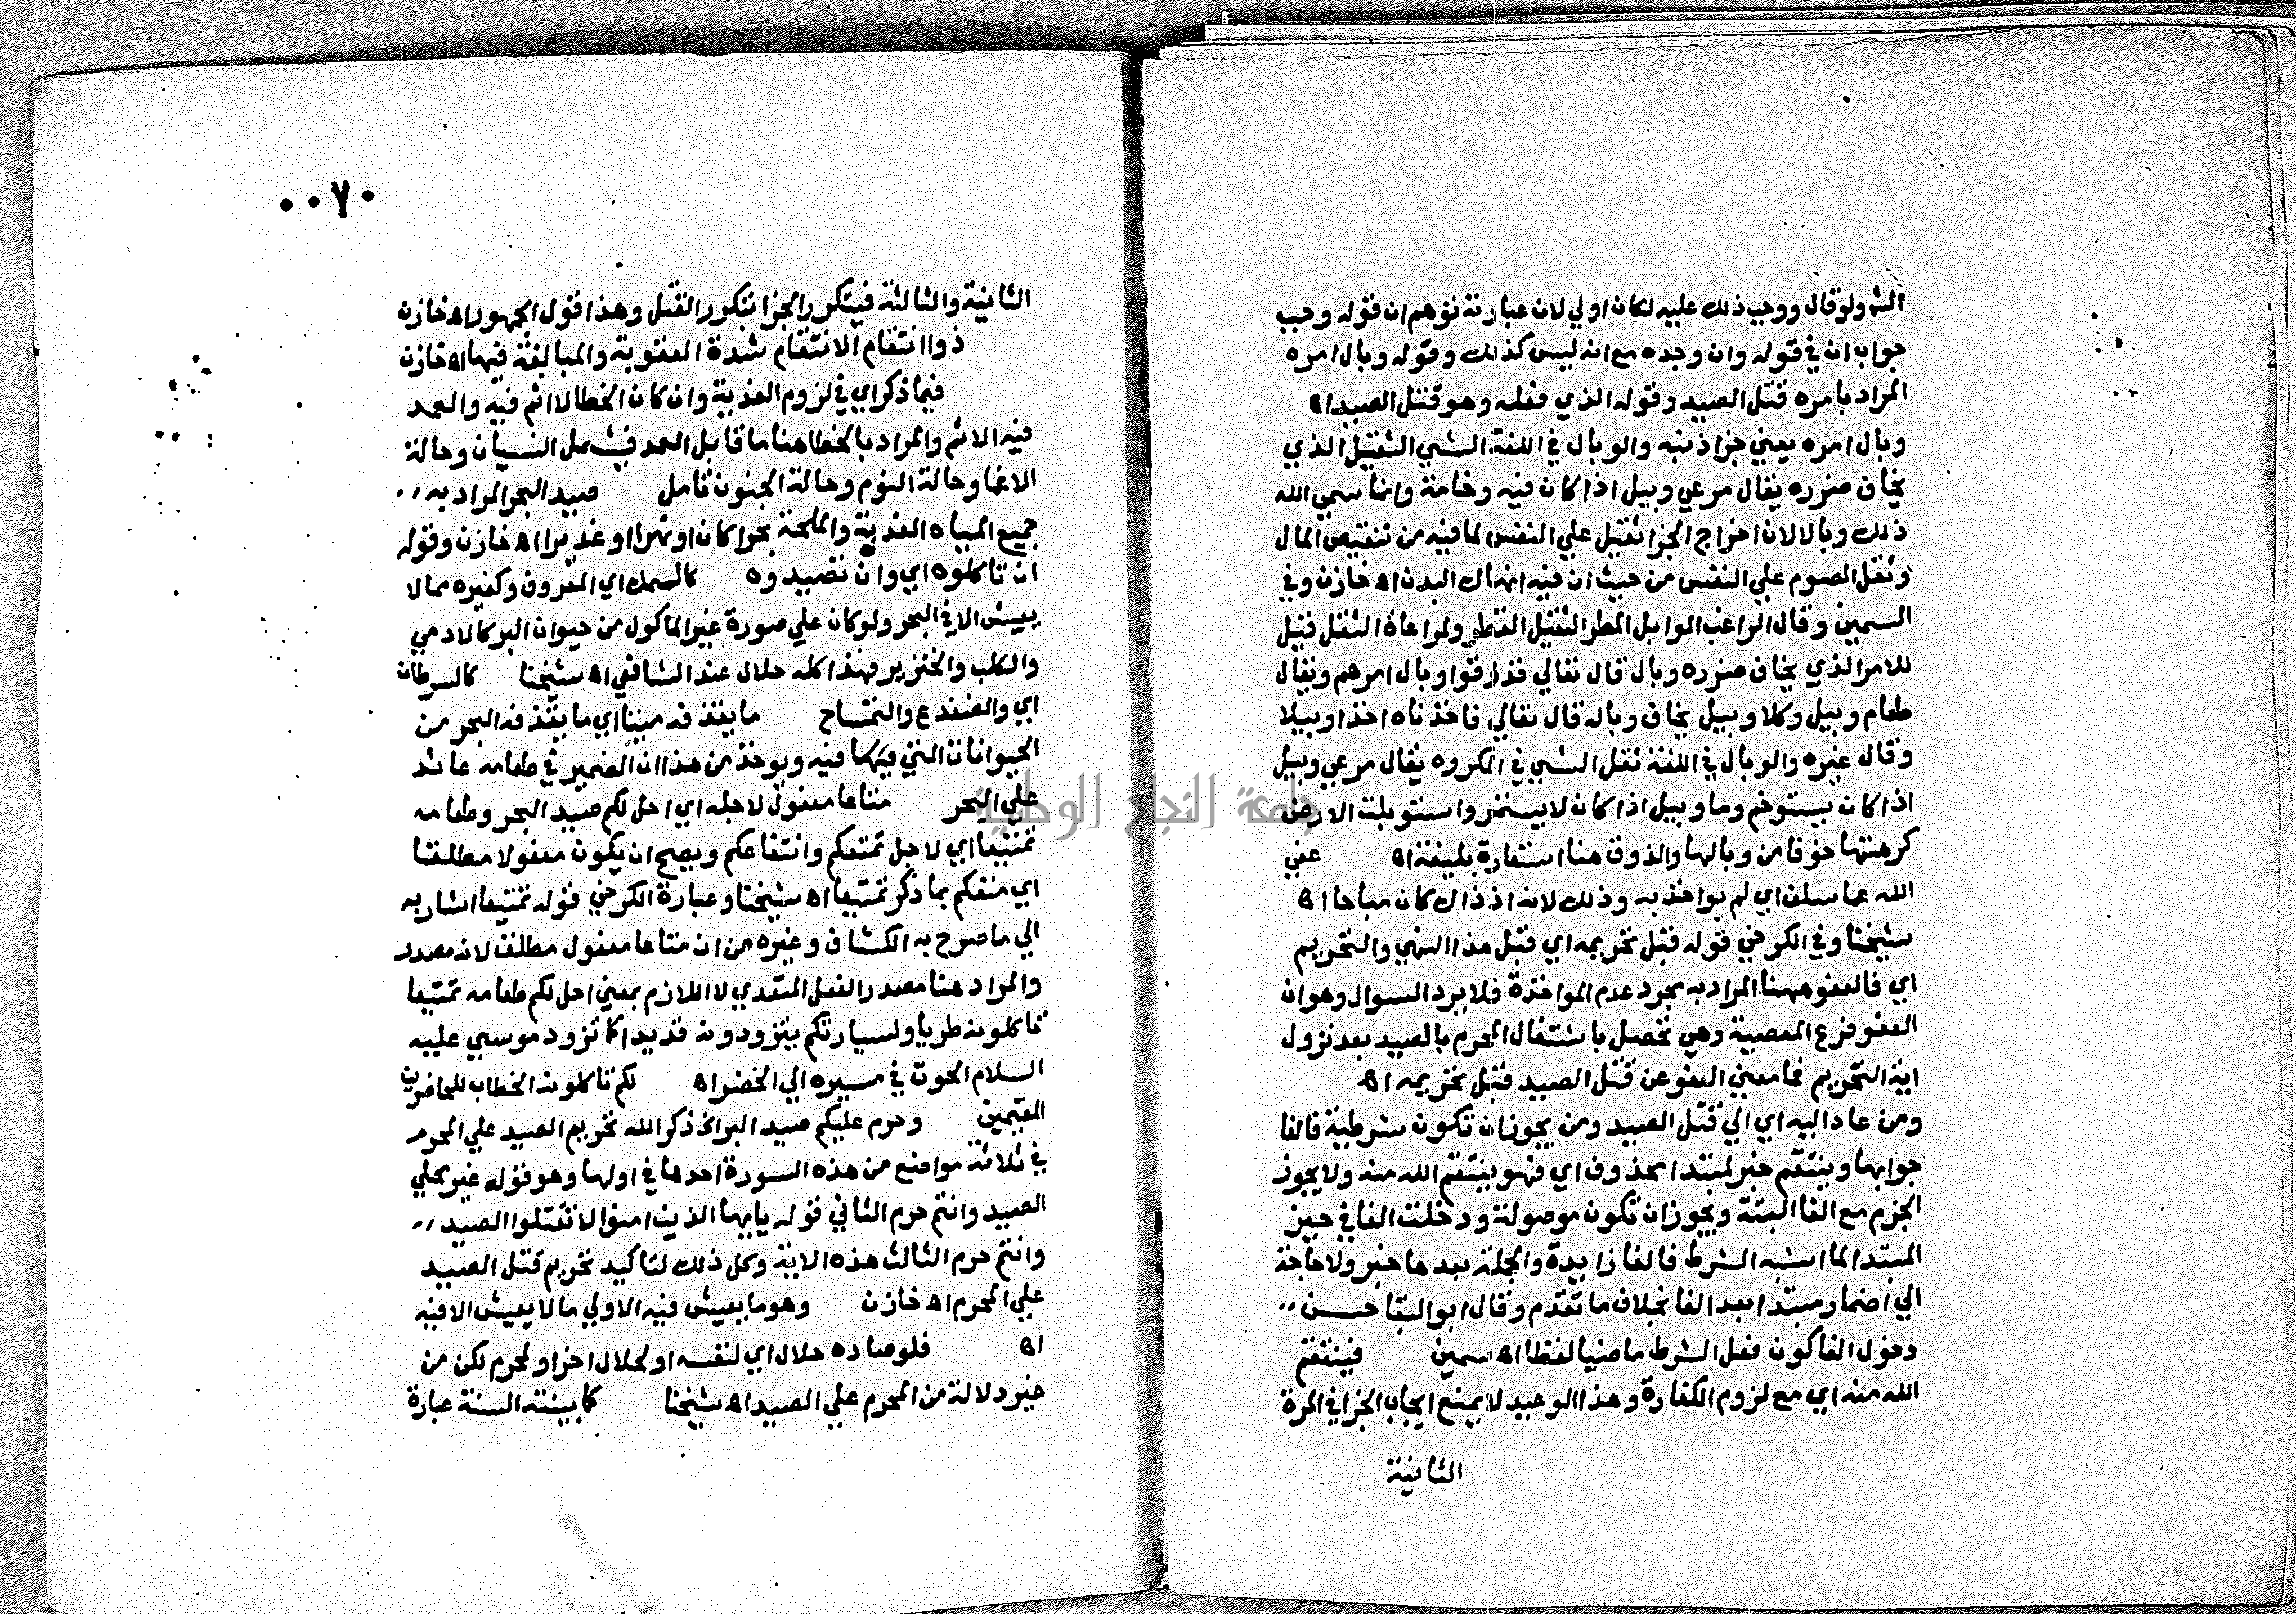 الشر ولو قال ووجب ذلك عليه لكان اولي لان عبارته توهم ان قوله وجب
جواب ان في قوله وان وجده مع انه ليس كذلك وقوله وبال امره
المراد بامره قتل الصيد وقوله الذي فعله وهو قتل الصيد اه
وبال امره يعني جزا ذنبه والوبال في اللغة الشي الثقيل الذي
يخاف ضرره يقال مرعي وبيل اذا كان فيه وخامة وانما سمي الله
ذلك وبالا لان اخراج الجزا ثقيل علي النفس لما فيه من تنقيص المال
وثقل الصوم علي النفس من حيث ان فيه انهاك البدن اه خازن وفي
السمين وقال الراغب الوابل المطر الثقيل القطر ولمراعاة الثقل قيل
للامر الذي يخاف ضرره وبال قال تعالي فذاقوا وبال امرهم ويقال
طعام وبيل وكلا وبيل يخاف وباله قال تعالي فاخذناه اخذا وبيلا
وقال غيره والوبال في اللغة ثقل الشي في المكروه يقال مرعي وبيل
اذا كان يستوخم وما وبيل اذا كان لا يستمر واستوبلت الارض
كرهتها خوفا من وبالها والذوق هنا استعارة بليغة اه عفي
الله عما سلف اي لم يواخذ به وذلك لانه اذ ذاك كان مباحا اه
شيخنا وفي الكرخي قوله قبل تحريمه اي قبل هذا النهي والتحريم
اي فالعفو ههنا المراد به مجرد عدم المواخذة فلا يرد السوال وهو ان
العفو فرع المعصية وهي تحصل باشتغال المحرم بالصيد بعد نزول
اية التحريم فما معني العفو عن قتل الصيد قبل تحريمه اه
ومن عاد اليه اي الي قتل الصيد ومن يجوز ان تكون شرطية فالفا
جوابها وينتقم خبر لمبتدا محذوف اي فهو ينتقم الله منه ولا يجوز
الجزم مع الفا البتة ويجوز ان تكون موصولة ودخلت الفا في حيز
المبتدا لما اشبه الشرط فالفا زايدة والجملة بعدها خبر ولا حاجة
الي اضمار مبتدا بعد الفا بخلاف ما تقدم وقال ابو البقا حسن
دخول الفا كون فعل الشرط ماضيا لفظا اه سمين فينتقم
الله منه اي مع لزوم الكفارة وهذا الوعيد لا يمنع ايجاب الجزا في المرة
الثانية
٠٠٧٠
الثانية والثالثة فيتكرر الجزا بتكرر القتل وهذا قول الجمهور اه خازن
ذوا انتقام الانتقام شدة العقوبة والمبالغة فيها اه خازن
فيما ذكر اي في لزوم الفدية وان كان الخطا لا اثم فيه والعمد
فيه الاثم والمراد بالخطا هنا ما قابل العمد فيشمل النسيان وحالة
الاغما وحالة النوم وحالة الجنون تامل صيد البحر المراد به
جميع المياه العذبة والملحة بحرا كان او نهرا او غديرا اه خازن وقوله
ان تاكلوه اي وان تصيدوه كالسمك اي المعروف وكغيره مما لا
يعيش الا في البحر ولو كان علي صورة غير الماكول من حيوان البر كالادمي
والكلب والخنزير فهذا كله حلال عند الشافعي اه شيخنا كالسرطان
اي والضفدع والتمساح ما يقذفه ميتا اي ما يقذفه البحر من
الحيوانات التي فيها فيه ويوخذ من هذا ان الضمير في طعامه عائد
علي البحر متاعا مفعول لاجله اي احل لكم صيد البحر وطعامه
تمتيعا اي لاجل تمتعكم وانتفاعكم ويصح ان يكون مفعولا مطلقا
اي متعكم بما ذكر تمتيعا اه شيخنا وعبارة الكرخي قوله تمتيعا اشار به
الي ما صرح به الكشاف وغيره من ان متاعا مفعول مطلق لانه مصدر
والمراد هنا مصدر الفعل المتعدي لا اللازم بمعني احل لكم طعامه تمتيعا
تاكلونه طريا ولسيارتكم يتزودونه قديدا كما تزود موسي عليه
السلام الحوت في مسيره الي الخضر اه لكم تاكلونه الخطاب للحاضرين
المقيمين وحرم عليكم صيد البر الخ ذكر الله تحريم الصيد علي المحرم
في ثلاثة مواضع من هذه السورة احدها في اولها وهو قوله غير محلي
الصيد وانتم حرم الثاني قوله يايها الذين امنوا لا تقتلوا الصيد
وانتم حرم الثالث هذه الاية وكل ذلك لتاكيد تحريم قتل الصيد
علي المحرم اه خازن وهو ما يعيش فيه الاولي ما لا يعيش الا فيه
اه فلو صاده حلال اي لنفسه او لحلال اخر او لمحرم لكن من
غير دلالة من المحرم علي الصيد اه شيخنا كما بينته السنة عبارة
جامعة النجاح الوطنية